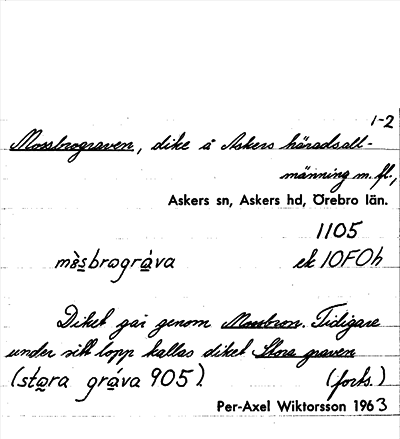 1-2
Mossbrograven, dike å Askers häradsall-
männing m. fl.,
Askers sn, Askers hd, Örebro län.
1105
mèsbrográva ek 10F0h
Diket går genom Mossbron. Tidigare
under sitt lopp kallas diket Stora graven
(stora gráva 905). (forts.)
Per-Axel Wiktorsson 1963